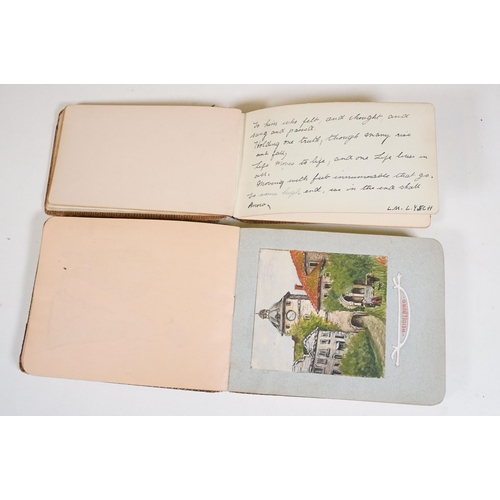 To him who felt and thought and
sang and passed
Holding one truth, though many rise
and fall,
Life moves to life, and one Life lives in
all.
Moving with feet innumerable that go,
To some end, we in this end shall
know,
L.M. LYNCH